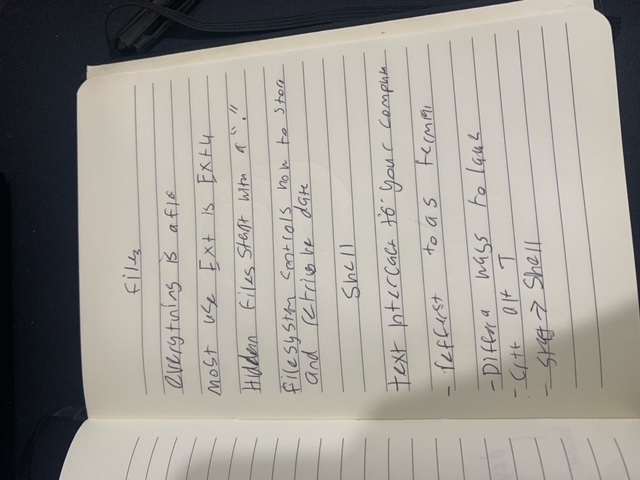 Files
everything is a file
most use Ext is Ext4
Hidden Files Start with a "."
filesystem controls how to store
and retrieve date
Shell
text interface to your compute
- reffers to as termi
- Differ ways to laun
- Crt alt T
- Start → Shell